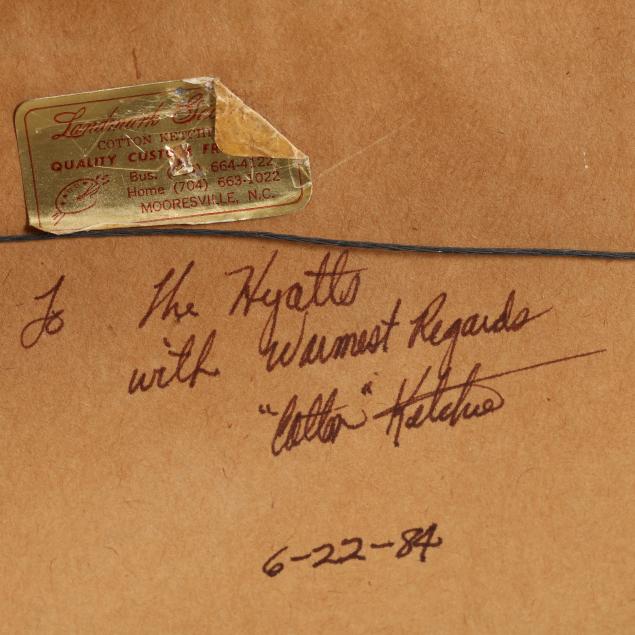 Landmark
COTTON KETCHIE
QUALITY CUSTOM FR
Bus. 664-4122
Home (704) 663-1022
MOORESVILLE, N.C.
To The Hyatts
with Warmest Regards
"Cotton" Ketchie
6-22-84